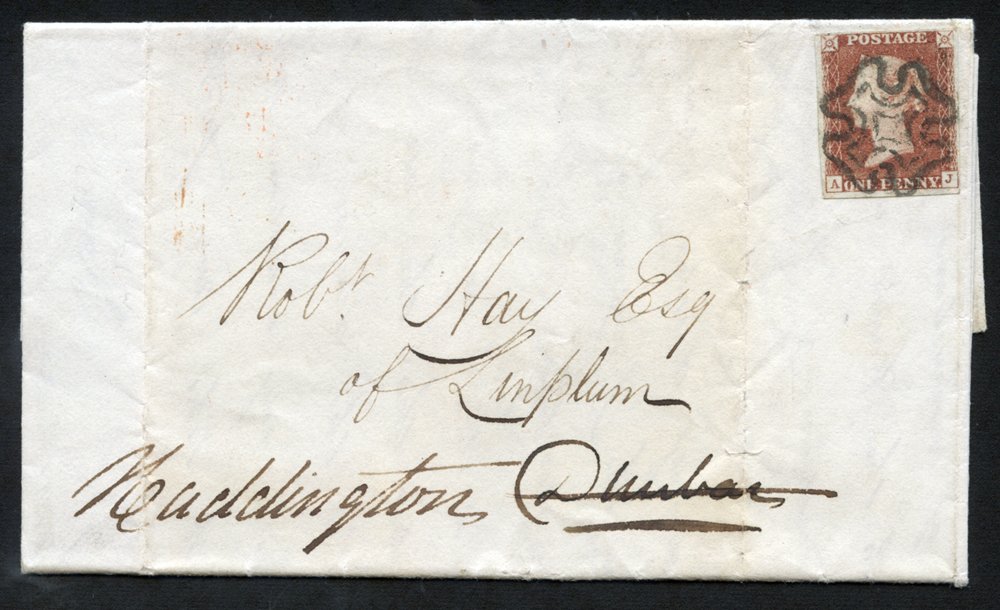 POSTAGE
A ONE PENNY. J
Robt. Hay Esq
of Linplum
Haddington Dunbar